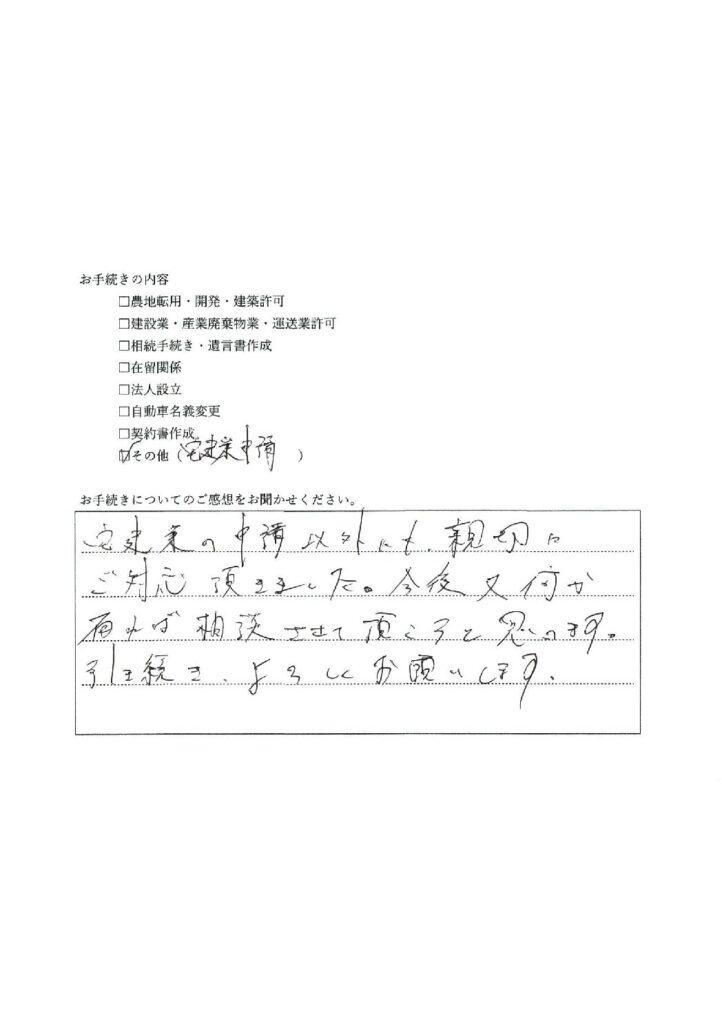 お手続きの内容
□農地転用・開発・建築許可
□建設業・産業廃棄物業・運送業許可
□相続手続き・遺言書作成
□在留関係
□法人設立
□自動車名義変更
□契約書作成
☑その他（宅建業申請）
お手続きについてのご感想をお聞かせください。
宅建業の申請以外にも、親切に
ご対応頂きました。今後又何か
有れば相談させて頂こうと思います。
引き続き、よろしくお願いします。